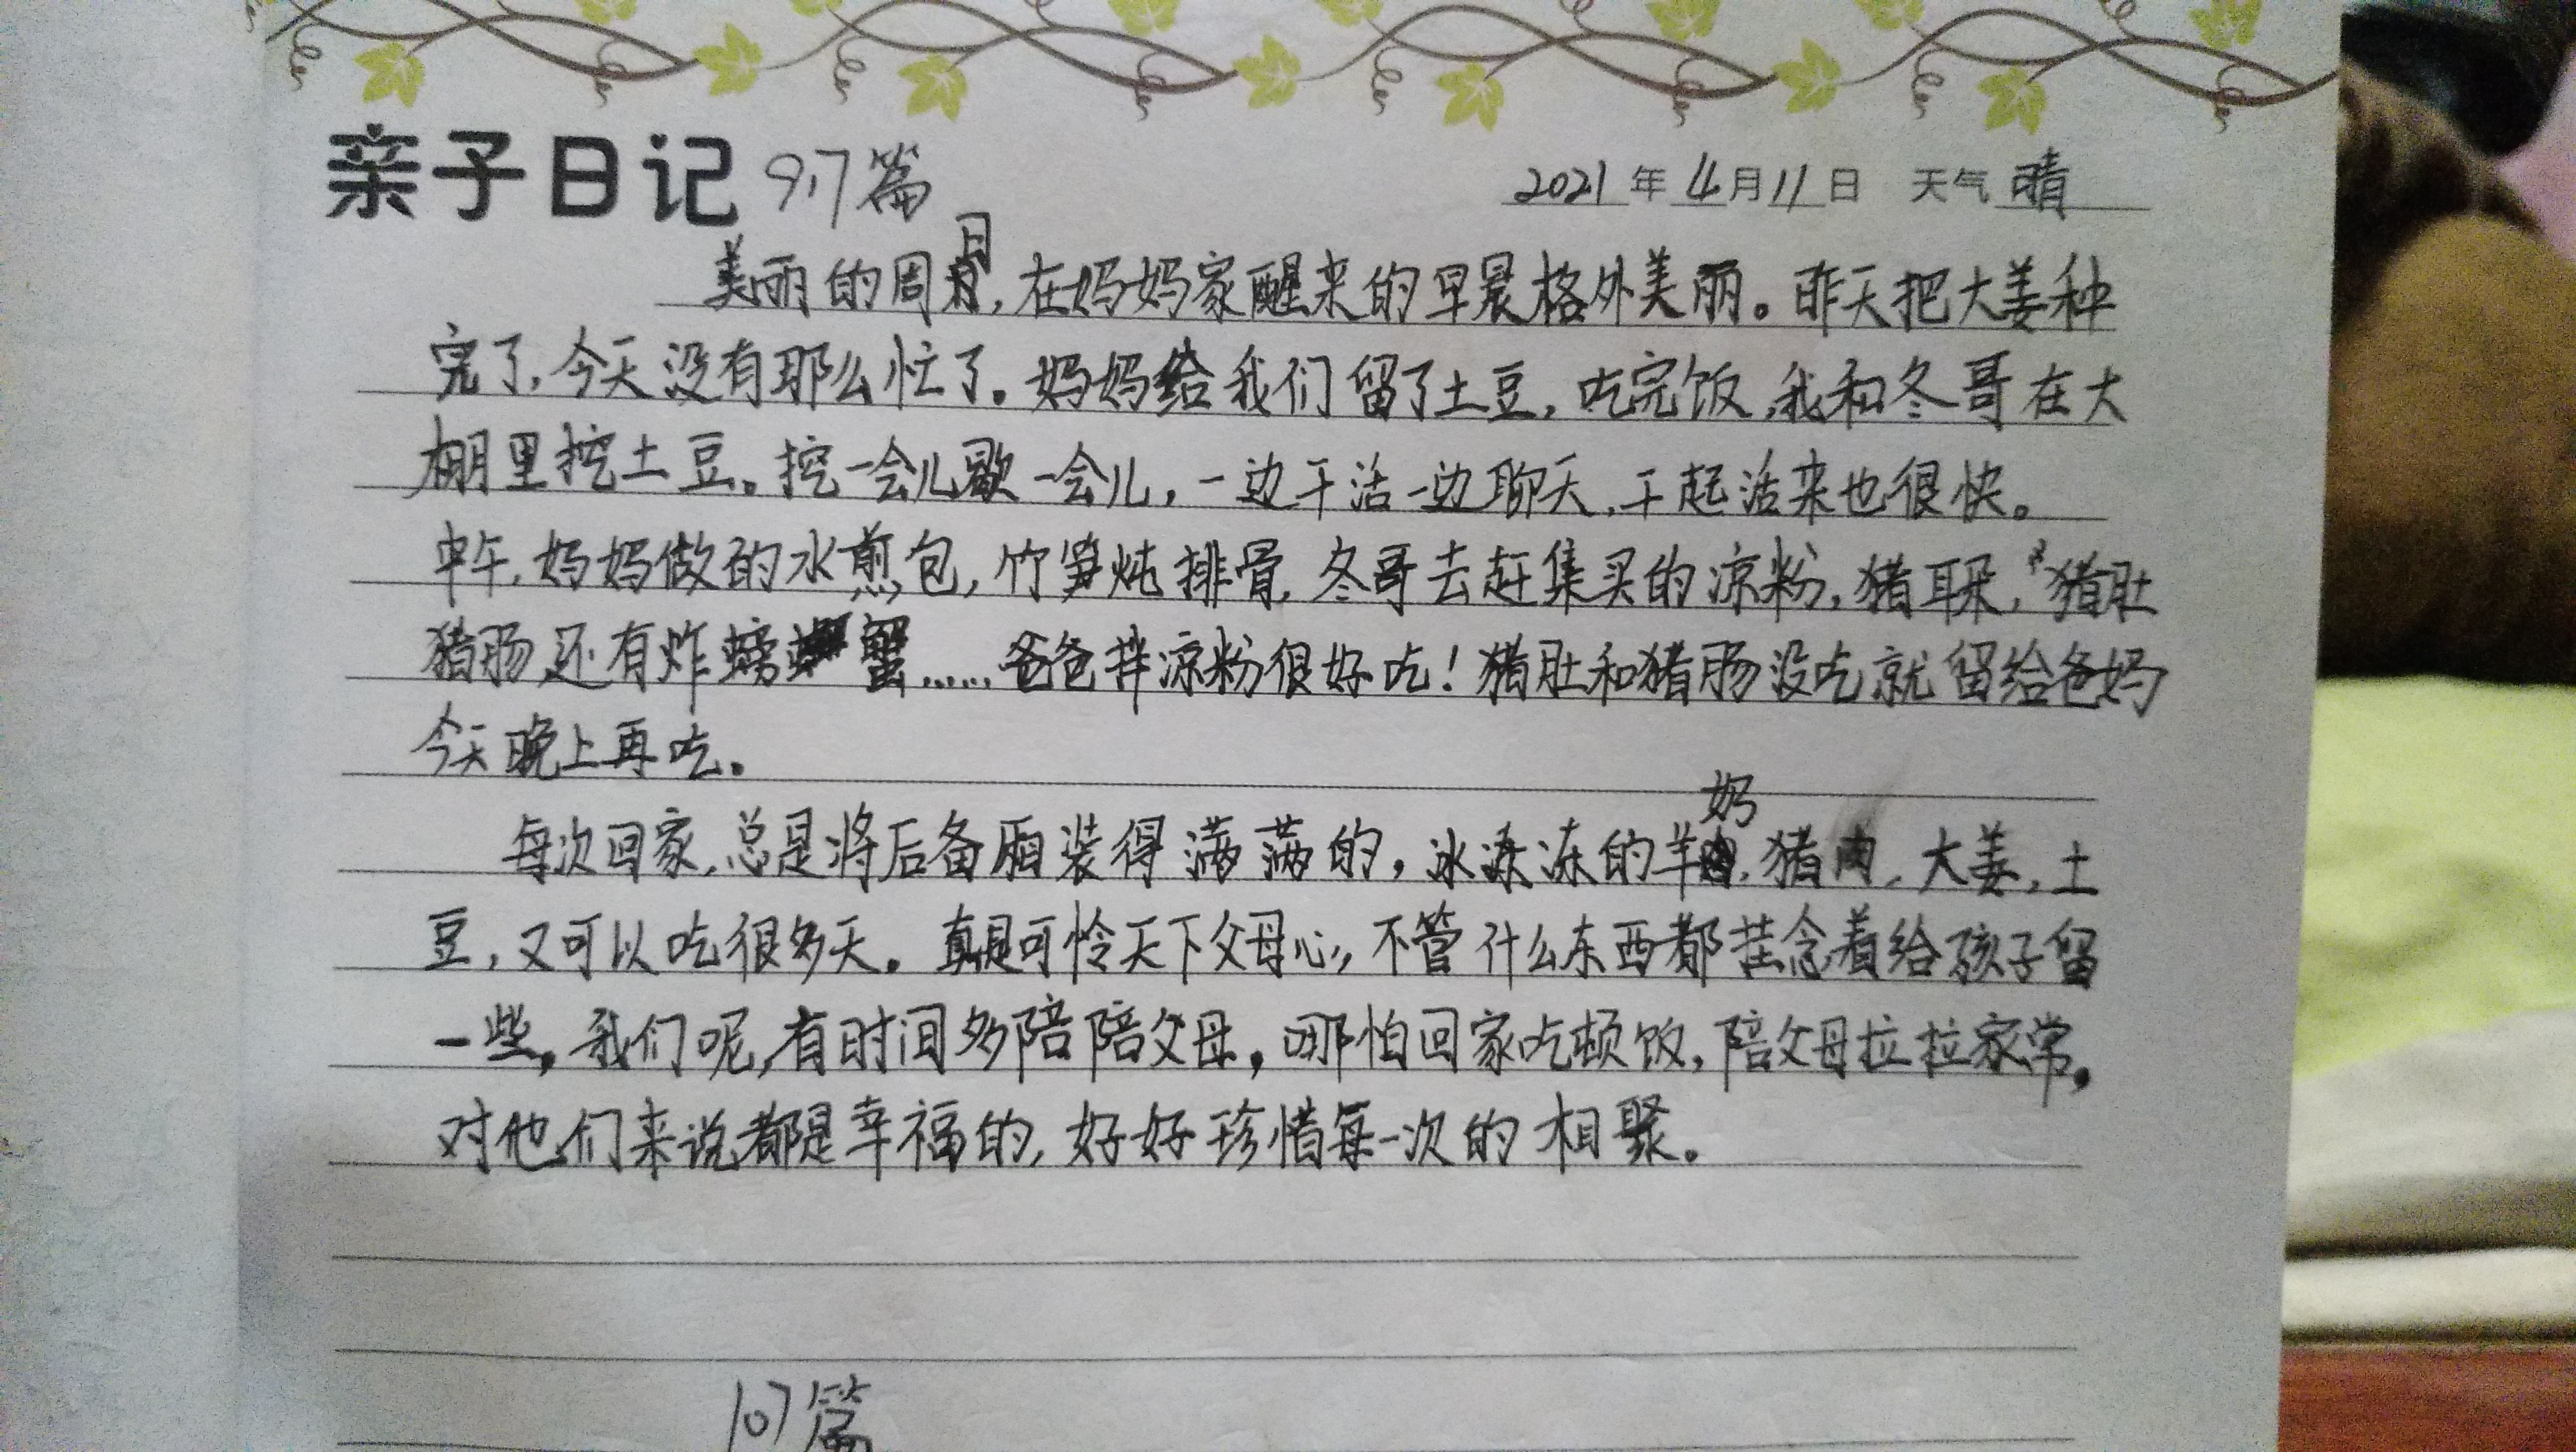 亲子日记 917篇 2021年4月11日 天气晴
美丽的周日,在妈妈家醒来的早晨格外美丽。昨天把大姜种
完了,今天没有那么忙了。妈妈给我们留了土豆,吃完饭,我和冬哥在大
棚里挖土豆。挖一会儿歇一会儿,一边干活一边聊天,干起活来也很快。
中午,妈妈做的水煎包,竹笋炖排骨,冬哥去赶集买的凉粉,猪耳朵,猪肚
猪肠,还有炸螃蟹……爸爸拌凉粉很好吃!猪肚和猪肠没吃就留给爸妈
今天晚上再吃。
每次回家,总是将后备厢装得满满的,冰冻冻的羊奶,猪肉,大姜,土
豆,又可以吃很多天。真是可怜天下父母心,不管什么东西都挂念着给孩子留
一些,我们呢,有时间多陪陪父母,哪怕回家吃顿饭,陪父母拉拉家常,
对他们来说都是幸福的,好好珍惜每一次的相聚。
107篇